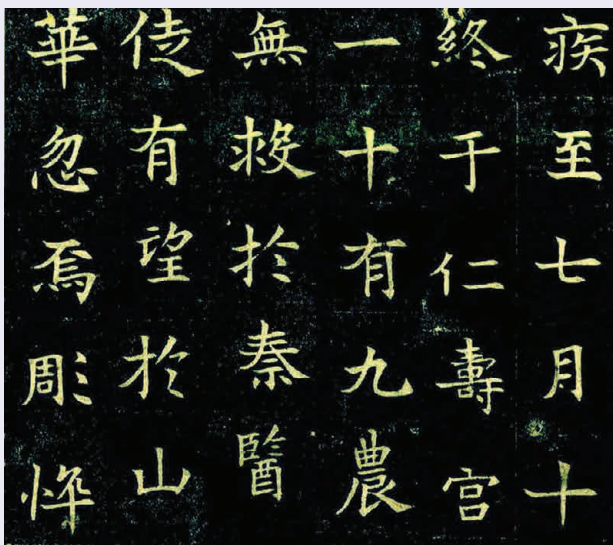 疾至七月十
終于仁壽宫
一十有九農
無救扵秦醫
徒有望扵山
華忽焉彫悴